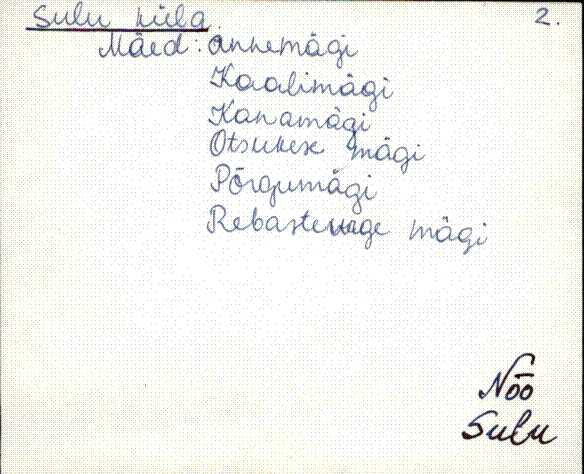 Sulu küla. 2.
Mäed: Annemägi
Kaalimägi
Kanamägi
Otsukese mägi
Põrgumägi
Rebaste mägi
Nõo
Sulu